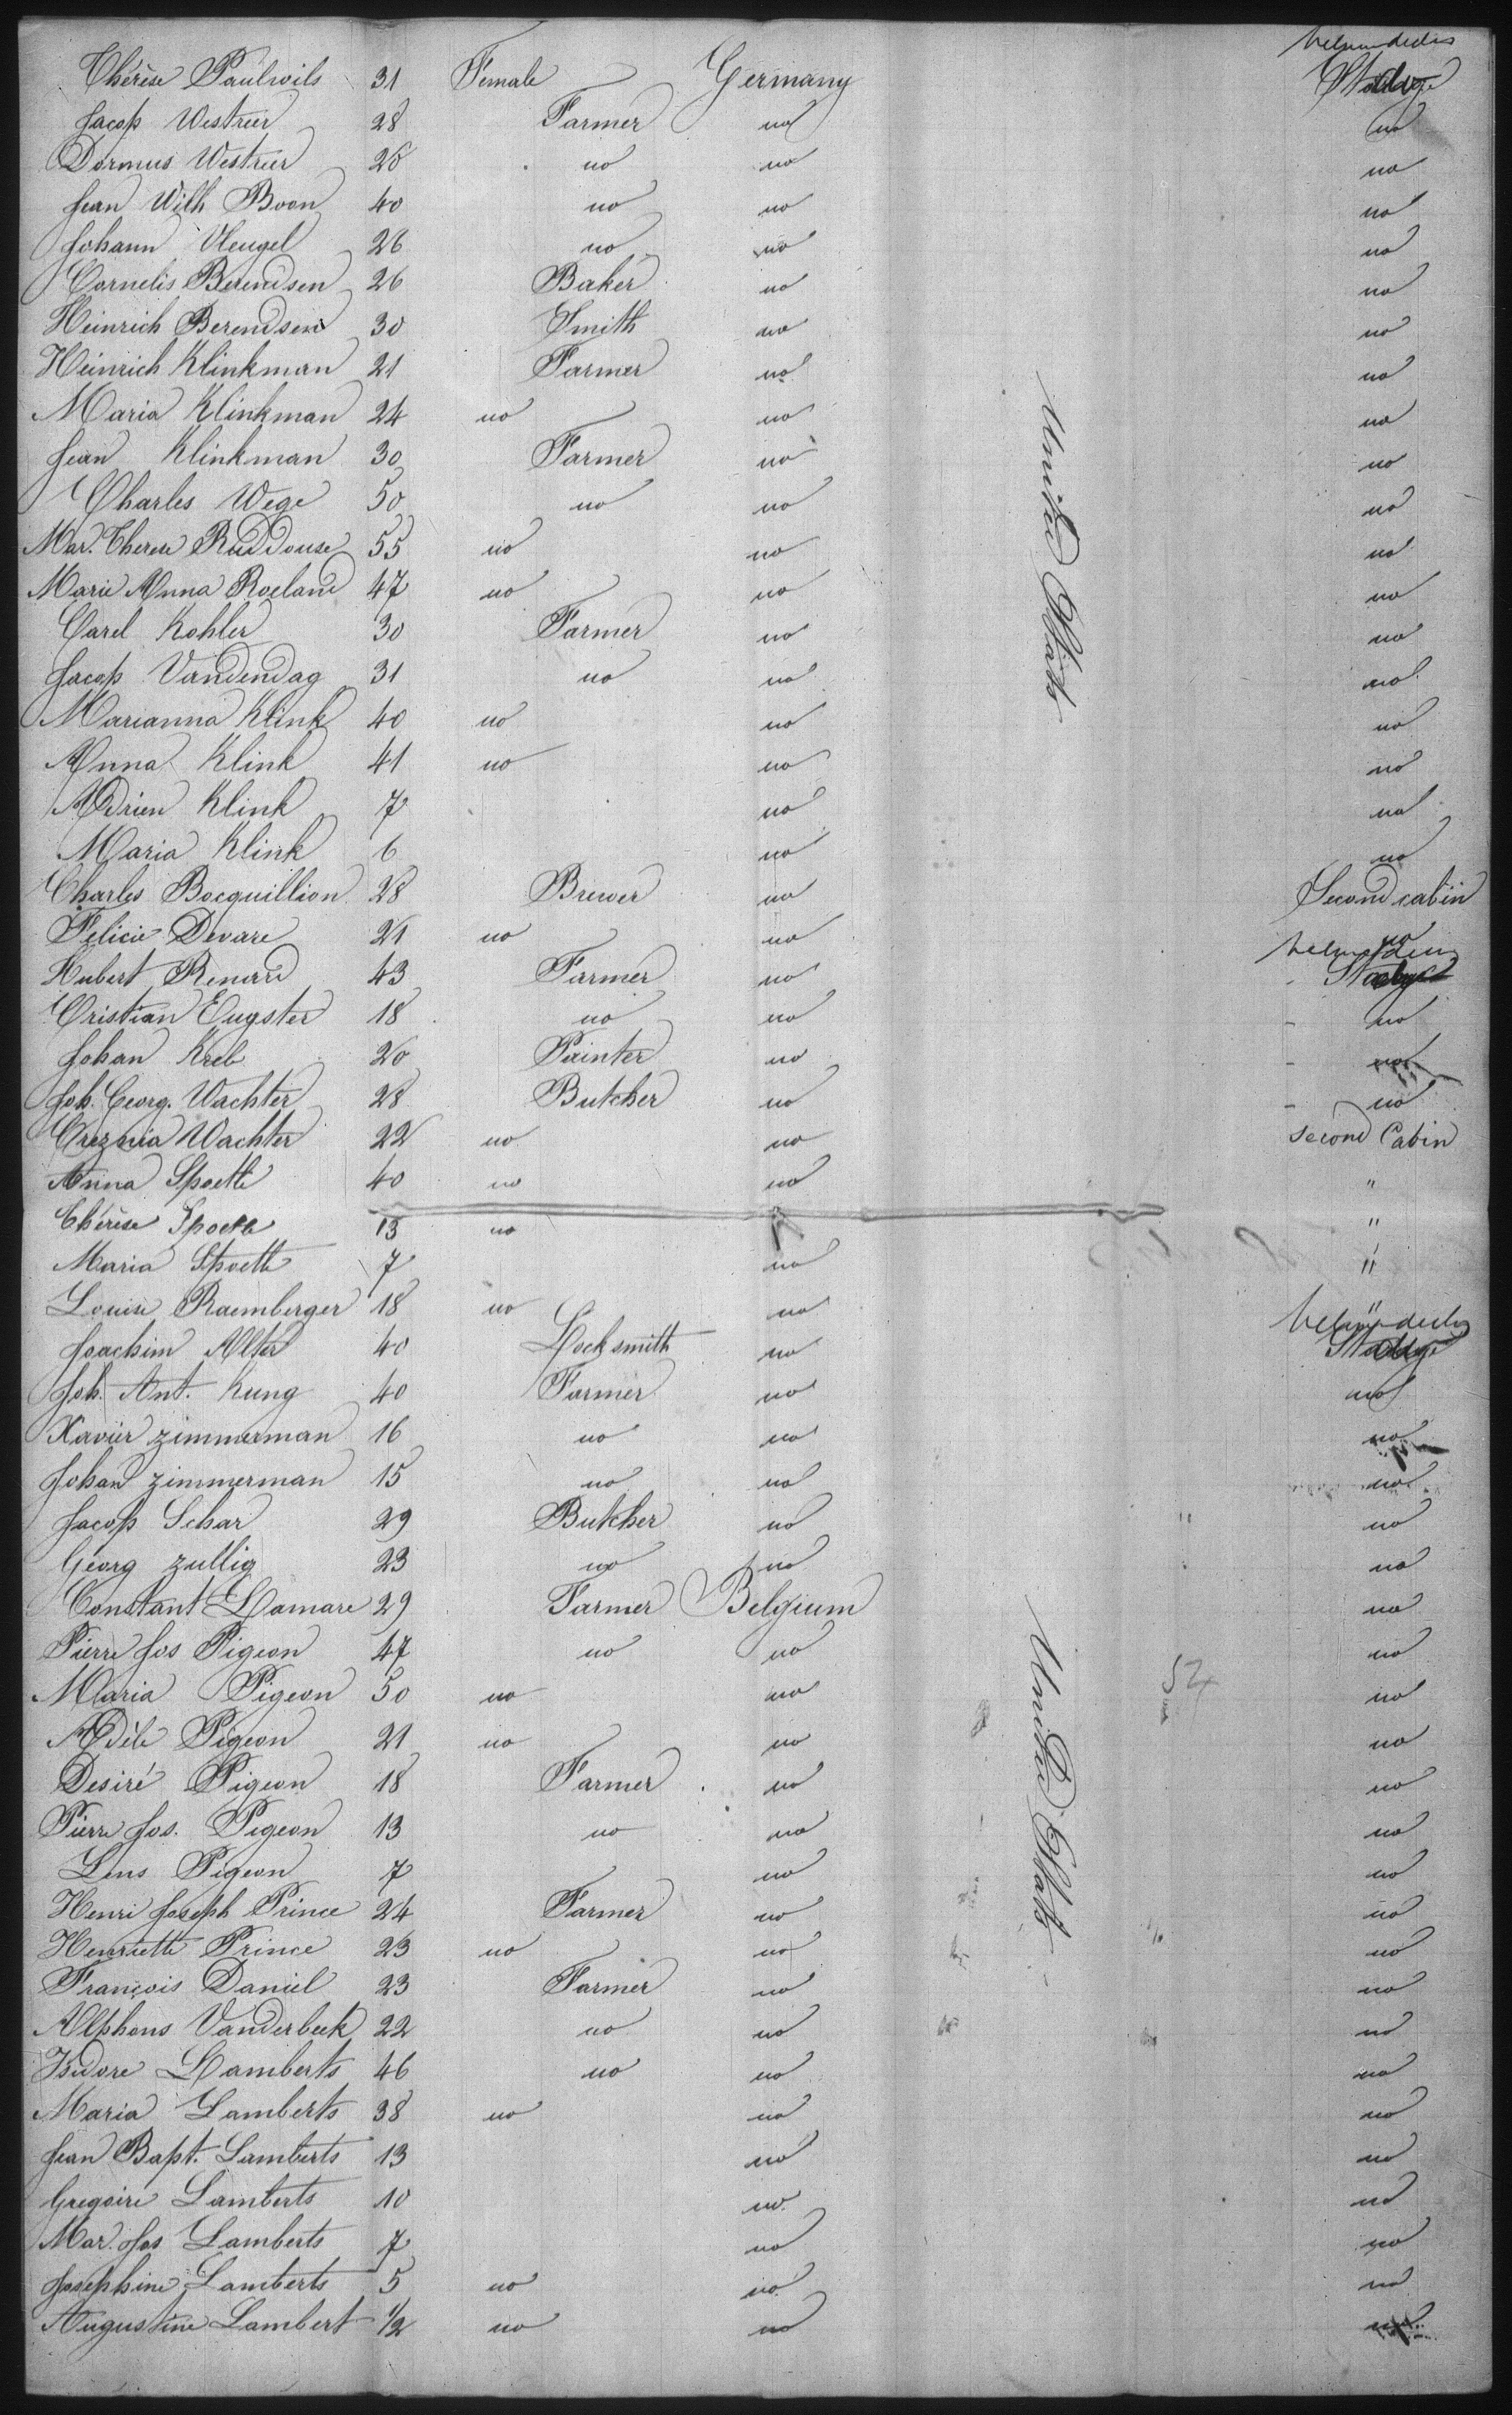 between decks
Thérèse Paulwils 31 Female Germany
Jacop Westreer 28 Farmer no no
Dormus Westreer 28 no no no
Jean Wilh Boon 40 no no no
Johann Vleugel 26 no no no
Cornelis Berendsen 26 Baker no no
Heinrich Berendsen 30 Smith no no
Heinrich Klinkman 21 Farmer no no
Maria Klinkman 24 no no no
Jean Klinkman 30 Farmer no no
Charles Wege 50 no no no
Mar. Therese Ruddouse 55 no no no
Marie Anna Roeland 47 no no no
Carel Kohler 30 Farmer no no
Jacop Vandendag 31 no no no
United States
Marianna Klink 40 no no no
Anna Klink 41 no no no
Adrien Klink 7 no no
Maria Klink 6 no no
Charles Bocquillion 28 Brewer no Second cabin
Felicie Devare 21 no no no
between decks
Hubert Renard 43 Farmer no
Cristian Eugster 18 no no no
Johan Kreb 20 Painter no no
Joh. Georg. Wachter 28 Butcher no no
Creznia Wachter 22 no no second Cabin
Anna Spoette 40 no no "
Thérèse Spoette 13 no "
Maria Spoette 7 no "
Louise Raemberger 18 no no "
between decks
Joachim Alter 40 Locksmith no
Joh. Ant. Kung 40 Farmer no no
Xavier zimmerman 16 no no no
Johan zimmerman 15 no no no
Jacop Schar 29 Butcher no no
Georg zullig 23 no no no
Constant Lamare 29 Farmer Belgium no
Pierre Jos Pigeon 47 no no no
Maria Pigeon 50 no no no
Adèle Pigeon 21 no no no
Desiré Pigeon 18 Farmer no no
United States
Pierre Jos. Pigeon 13 no no no
Lens Pigeon 7 no no
Henri Joseph Prince 24 Farmer no no
Henriette Prince 23 no no no
François Daniel 23 Farmer no no
Alphons Vanderbeek 22 no no no
Isidore Lamberts 46 no no no
Maria Lamberts 38 no no no
Jean Bapt. Lamberts 13 no no
Gregoire Lamberts 10 no no
Mar. Jos Lamberts 7 no no
Josephine Lamberts 5 no no no
Augustine Lambert 1/2 no no no